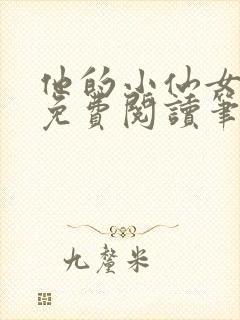 他的小仙女
免費閱讀筆
九釐米